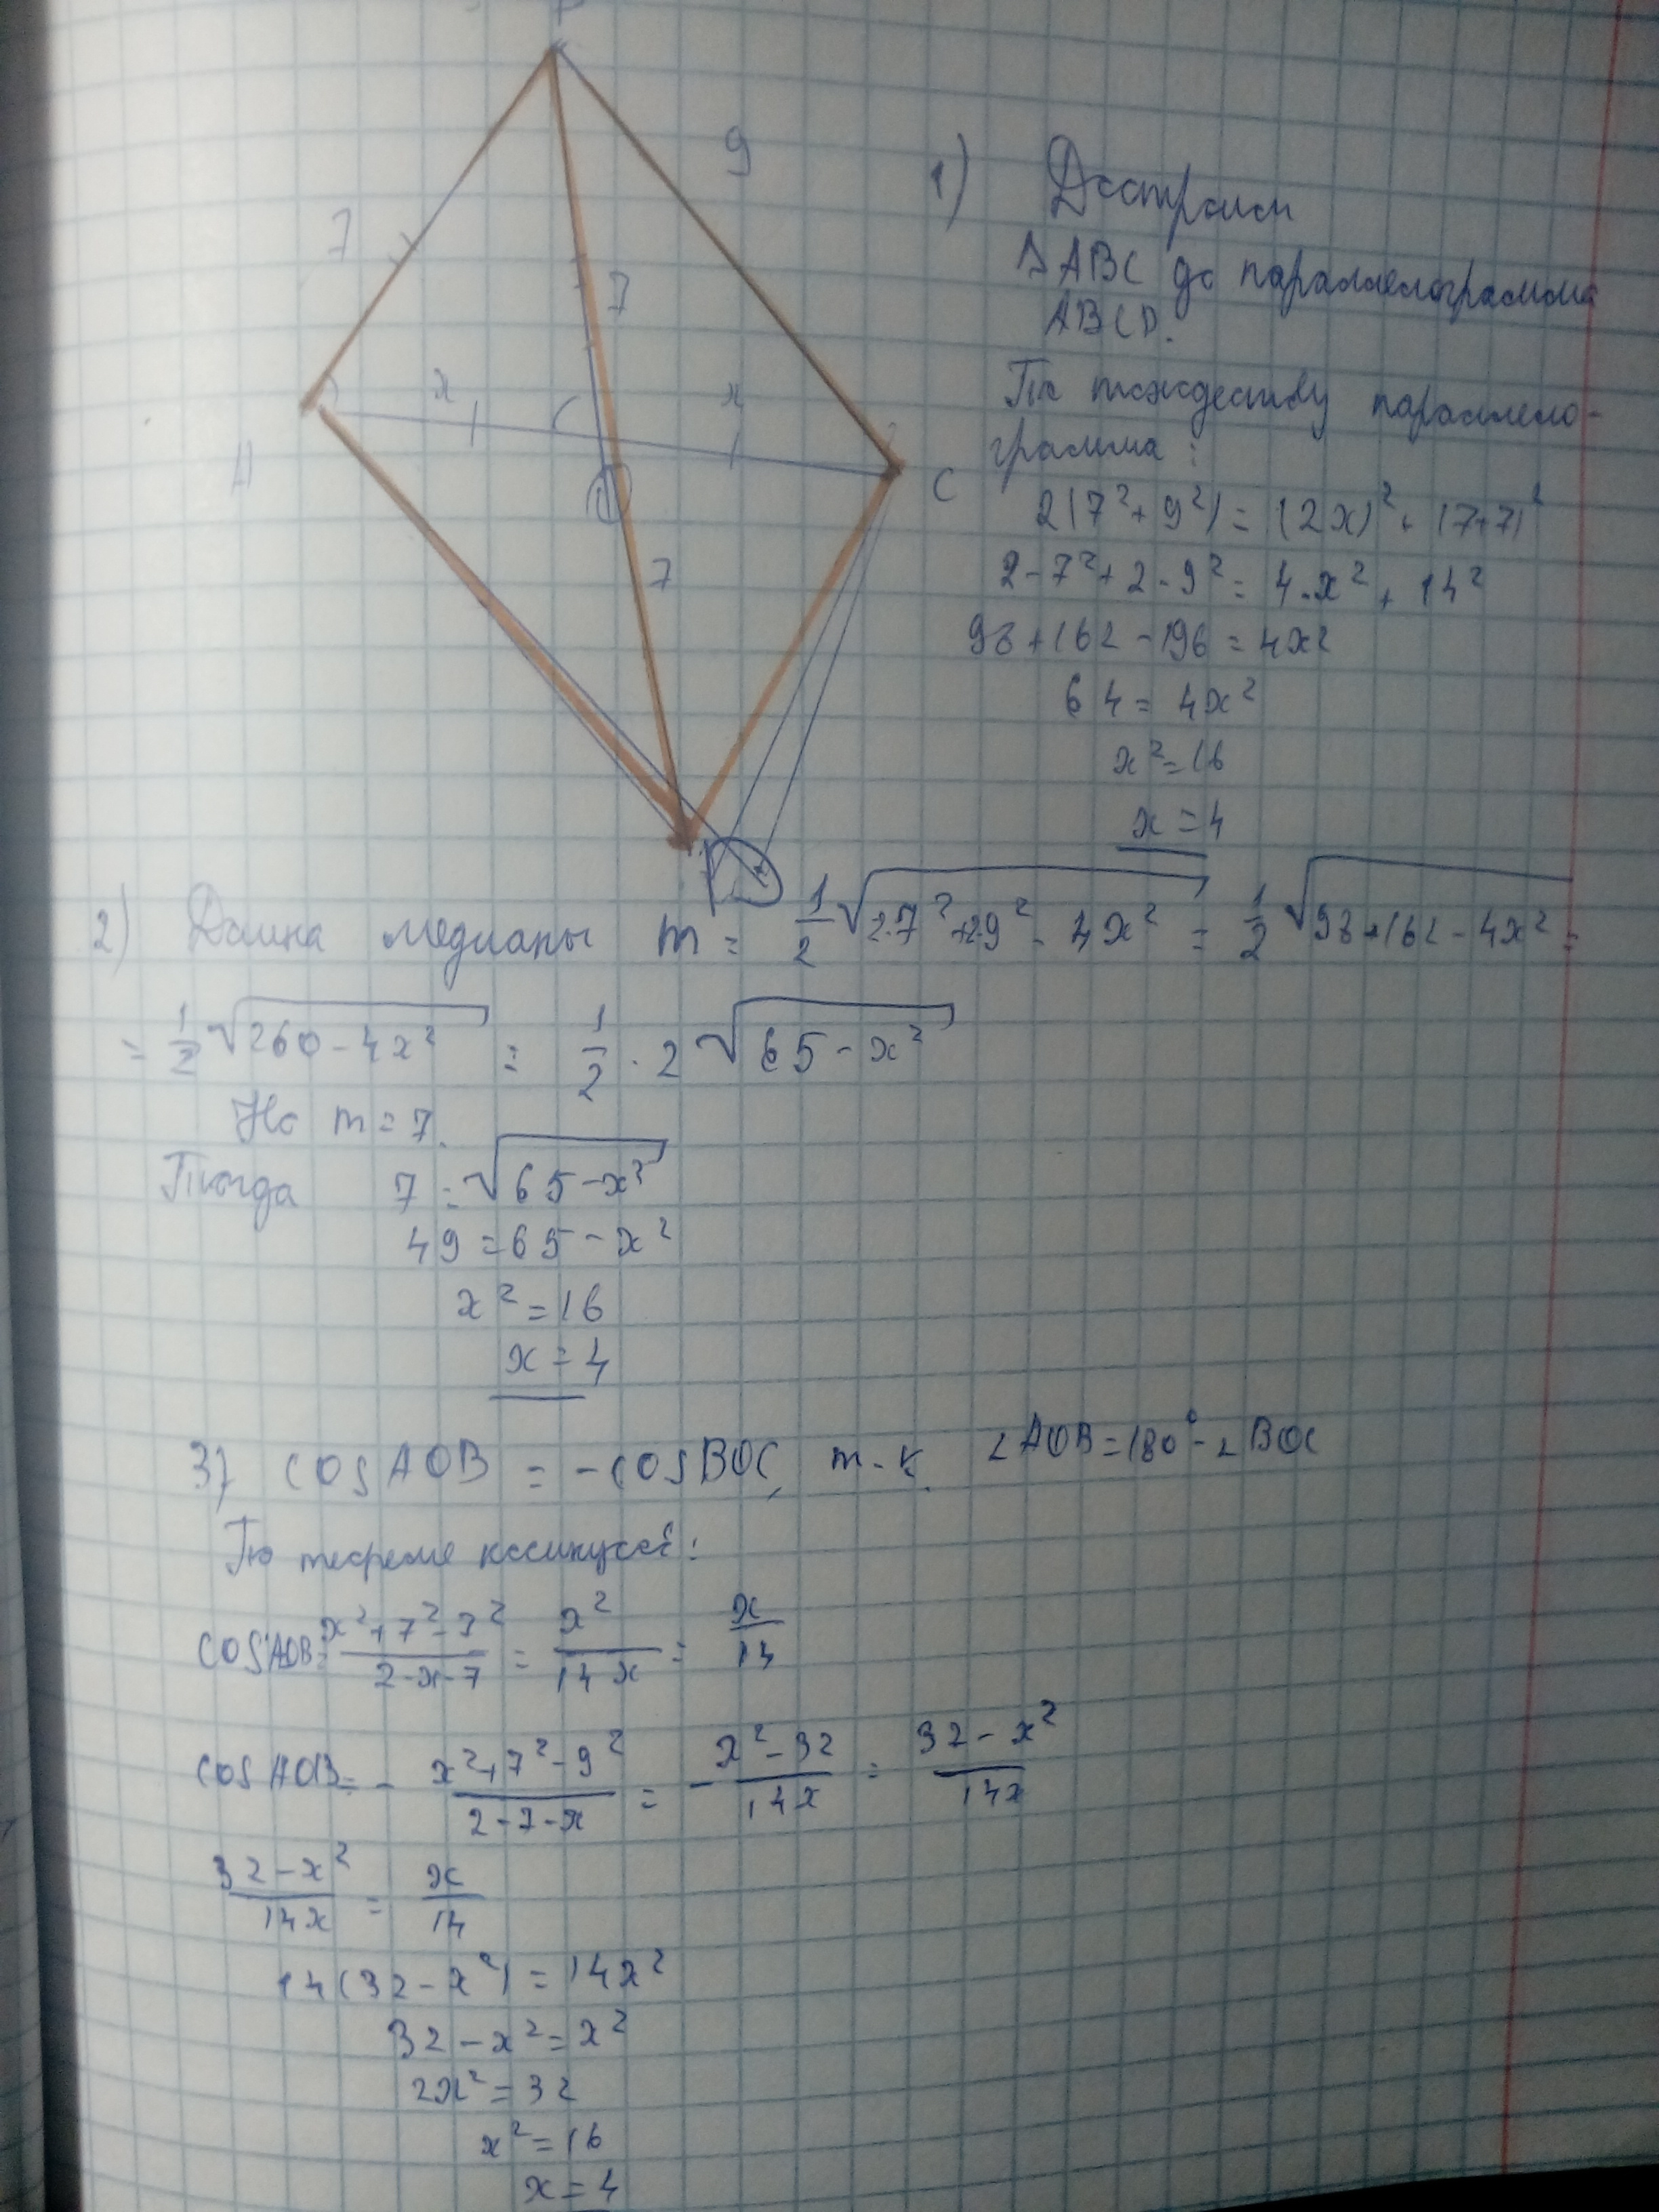 9
7
7
x
x
C
7
1) Достроим
△ABC до параллелограмма
ABCD.
По тождеству параллело-
грамма:
2(7²+9²)=(2x)²+(7+7)²
2·7²+2·9²=4·x²+14²
98+162-196=4x²
64=4x²
x²=16
x=4
2) Длина медианы m = 1/2√(2·7²+2·9²-4x²) = 1/2√(98+162-4x²) =
= 1/2√(260-4x²) = 1/2·2√(65-x²)
Но m=7.
Тогда 7=√(65-x²)
49=65-x²
x²=16
x=4
3) cosAOB = -cosBOC, т.к. ∠AOB=180°-∠BOC
По теореме косинусов:
cosAOB= (x²+7²-7²)/(2·x·7) = x²/(14x) = x/14
cosAOB= - (x²+7²-9²)/(2·7·x) = - (x²-32)/(14x) = (32-x²)/(14x)
(32-x²)/(14x) = x/14
14(32-x²)=14x²
32-x²=x²
2x²=32
x²=16
x=4